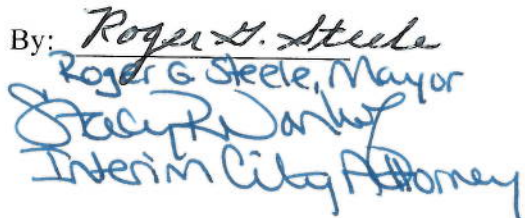 By: Roger G. Steele
Roger G Steele, Mayor
Stacy R
Interim City Attorney